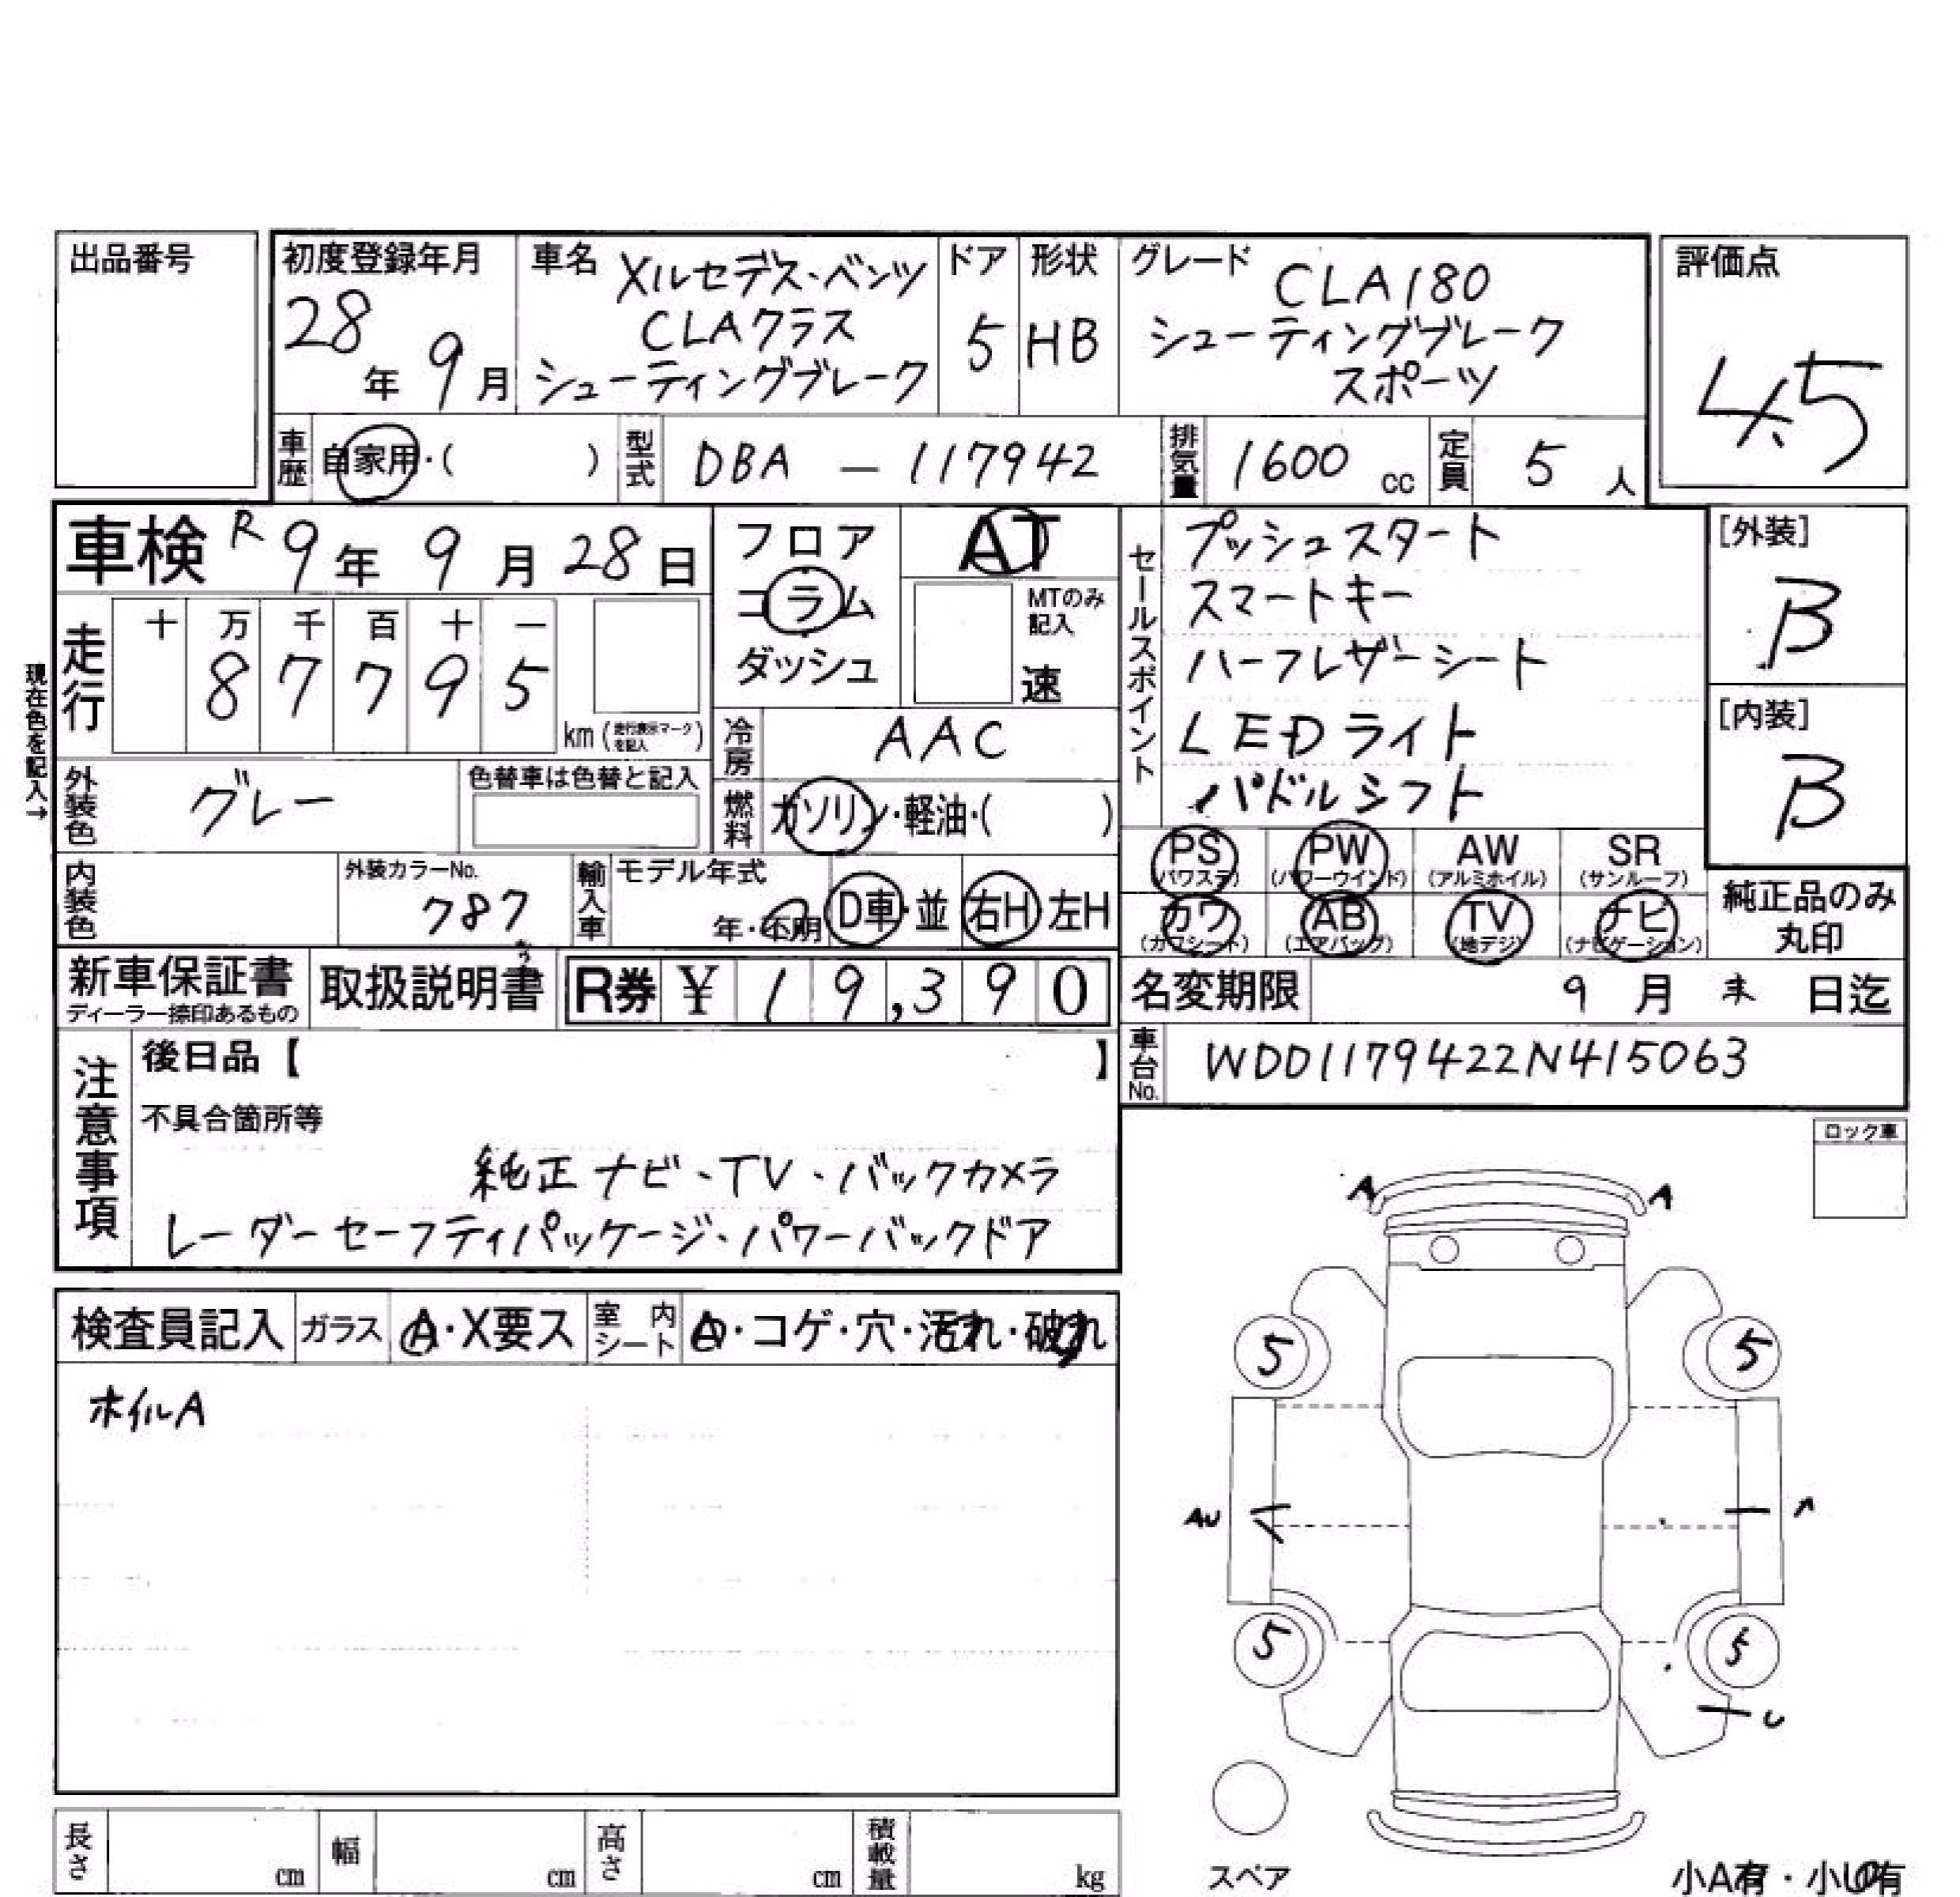 出品番号
初度登録年月
28年 9月
車名
メルセデス・ベンツ
CLAクラス
シューティングブレーク
ドア
5
形状
HB
グレード
CLA180
シューティングブレーク
スポーツ
評価点
4.5
車歴
自家用・( )
型式
DBA — 117942
排気量
1600 cc
定員
5 人
車検 R9年 9月 28日
現在色を記入→
走行
十 万 千 百 十 一
8 7 7 9 5
km (走行表示マークを記入)
フロア
コラム
ダッシュ
AT
MTのみ
記入
速
冷房
AAC
燃料
ガソリン・軽油・( )
外装色
グレー
色替車は色替と記入
内装色
外装カラーNo.
787
輸入車
モデル年式
年・不明
D車・並 右H 左H
セールスポイント
プッシュスタート
スマートキー
ハーフレザーシート
LEDライト
パドルシフト
[外装]
B
[内装]
B
PS (パワステ)
PW (パワーウインド)
AW (アルミホイル)
SR (サンルーフ)
カワ (カワシート)
AB (エアバッグ)
TV (地デジ)
ナビ (ナビゲーション)
純正品のみ
丸印
新車保証書
ディーラー捺印あるもの
取扱説明書
R券 ¥ 19,390
名変期限 9月 末 日迄
車台No.
WDD1179422N415063
注意事項
後日品【 】
不具合箇所等
純正ナビ、TV、バックカメラ
レーダーセーフティパッケージ、パワーバックドア
ロック車
検査員記入 ガラス A・X要ス 室内シート A・コゲ・穴・汚れ・破れ
ホイルA
A A
5 5
AU A
5 5
U
スペア
小A有・小U有
長さ cm 幅 cm 高さ cm 積載量 kg